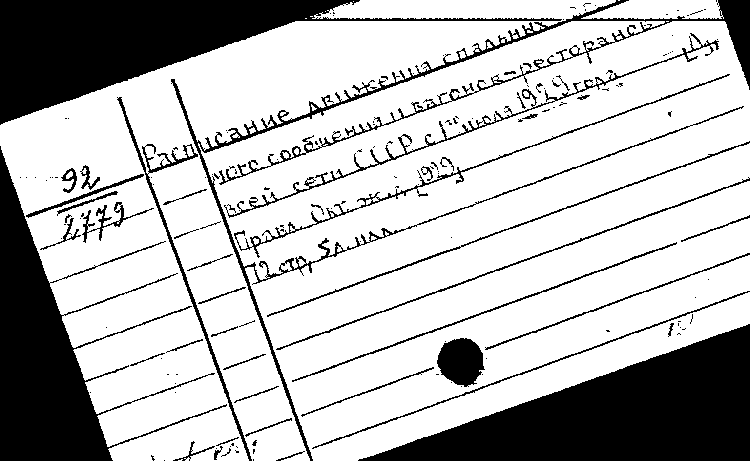 92
2779
Расписание движения спальных
мого сообщения и вагонов-ресторанов
всей сети СССР с 1го июля 1929 года
Правл. Окт. ж.д. [1929]
72 стр, 5 л. илл.